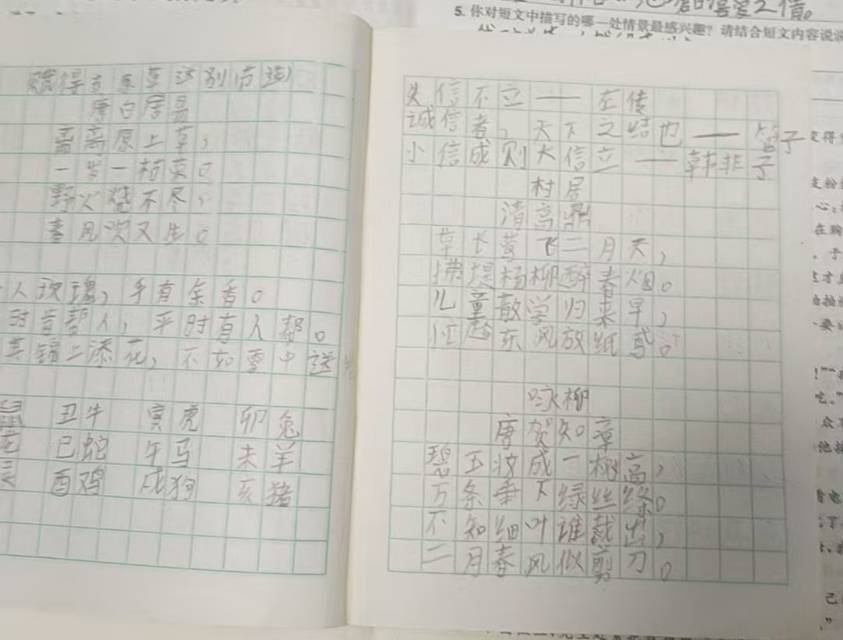 5. 你对短文中描写的哪一处情景最感兴趣？请结合短文内容说说
赋得古原草送别（节选）
唐白居易
离离原上草，
一岁一枯荣。
野火烧不尽，
春风吹又生。
人玫瑰，手有余香。
时肯帮人，平时有人帮。
其锦上添花，不如雪中送
鼠 丑牛 寅虎 卯兔
龙 巳蛇 午马 未羊
酉鸡 戌狗 亥猪
失信不立——左传
诚信者，天下之结也——管子
小信成则大信立——韩非子
村居
清高鼎
草长莺飞二月天，
拂堤杨柳醉春烟。
儿童散学归来早，
忙趁东风放纸鸢。
咏柳
唐贺知章
碧玉妆成一树高，
万条垂下绿丝绦。
不知细叶谁裁出，
二月春风似剪刀。